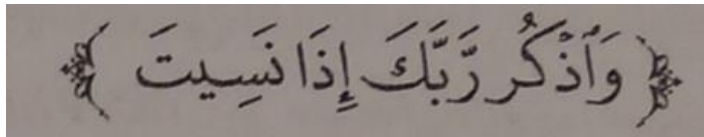 ﴿ وَٱذْكُر رَّبَّكَ إِذَا نَسِيتَ ﴾